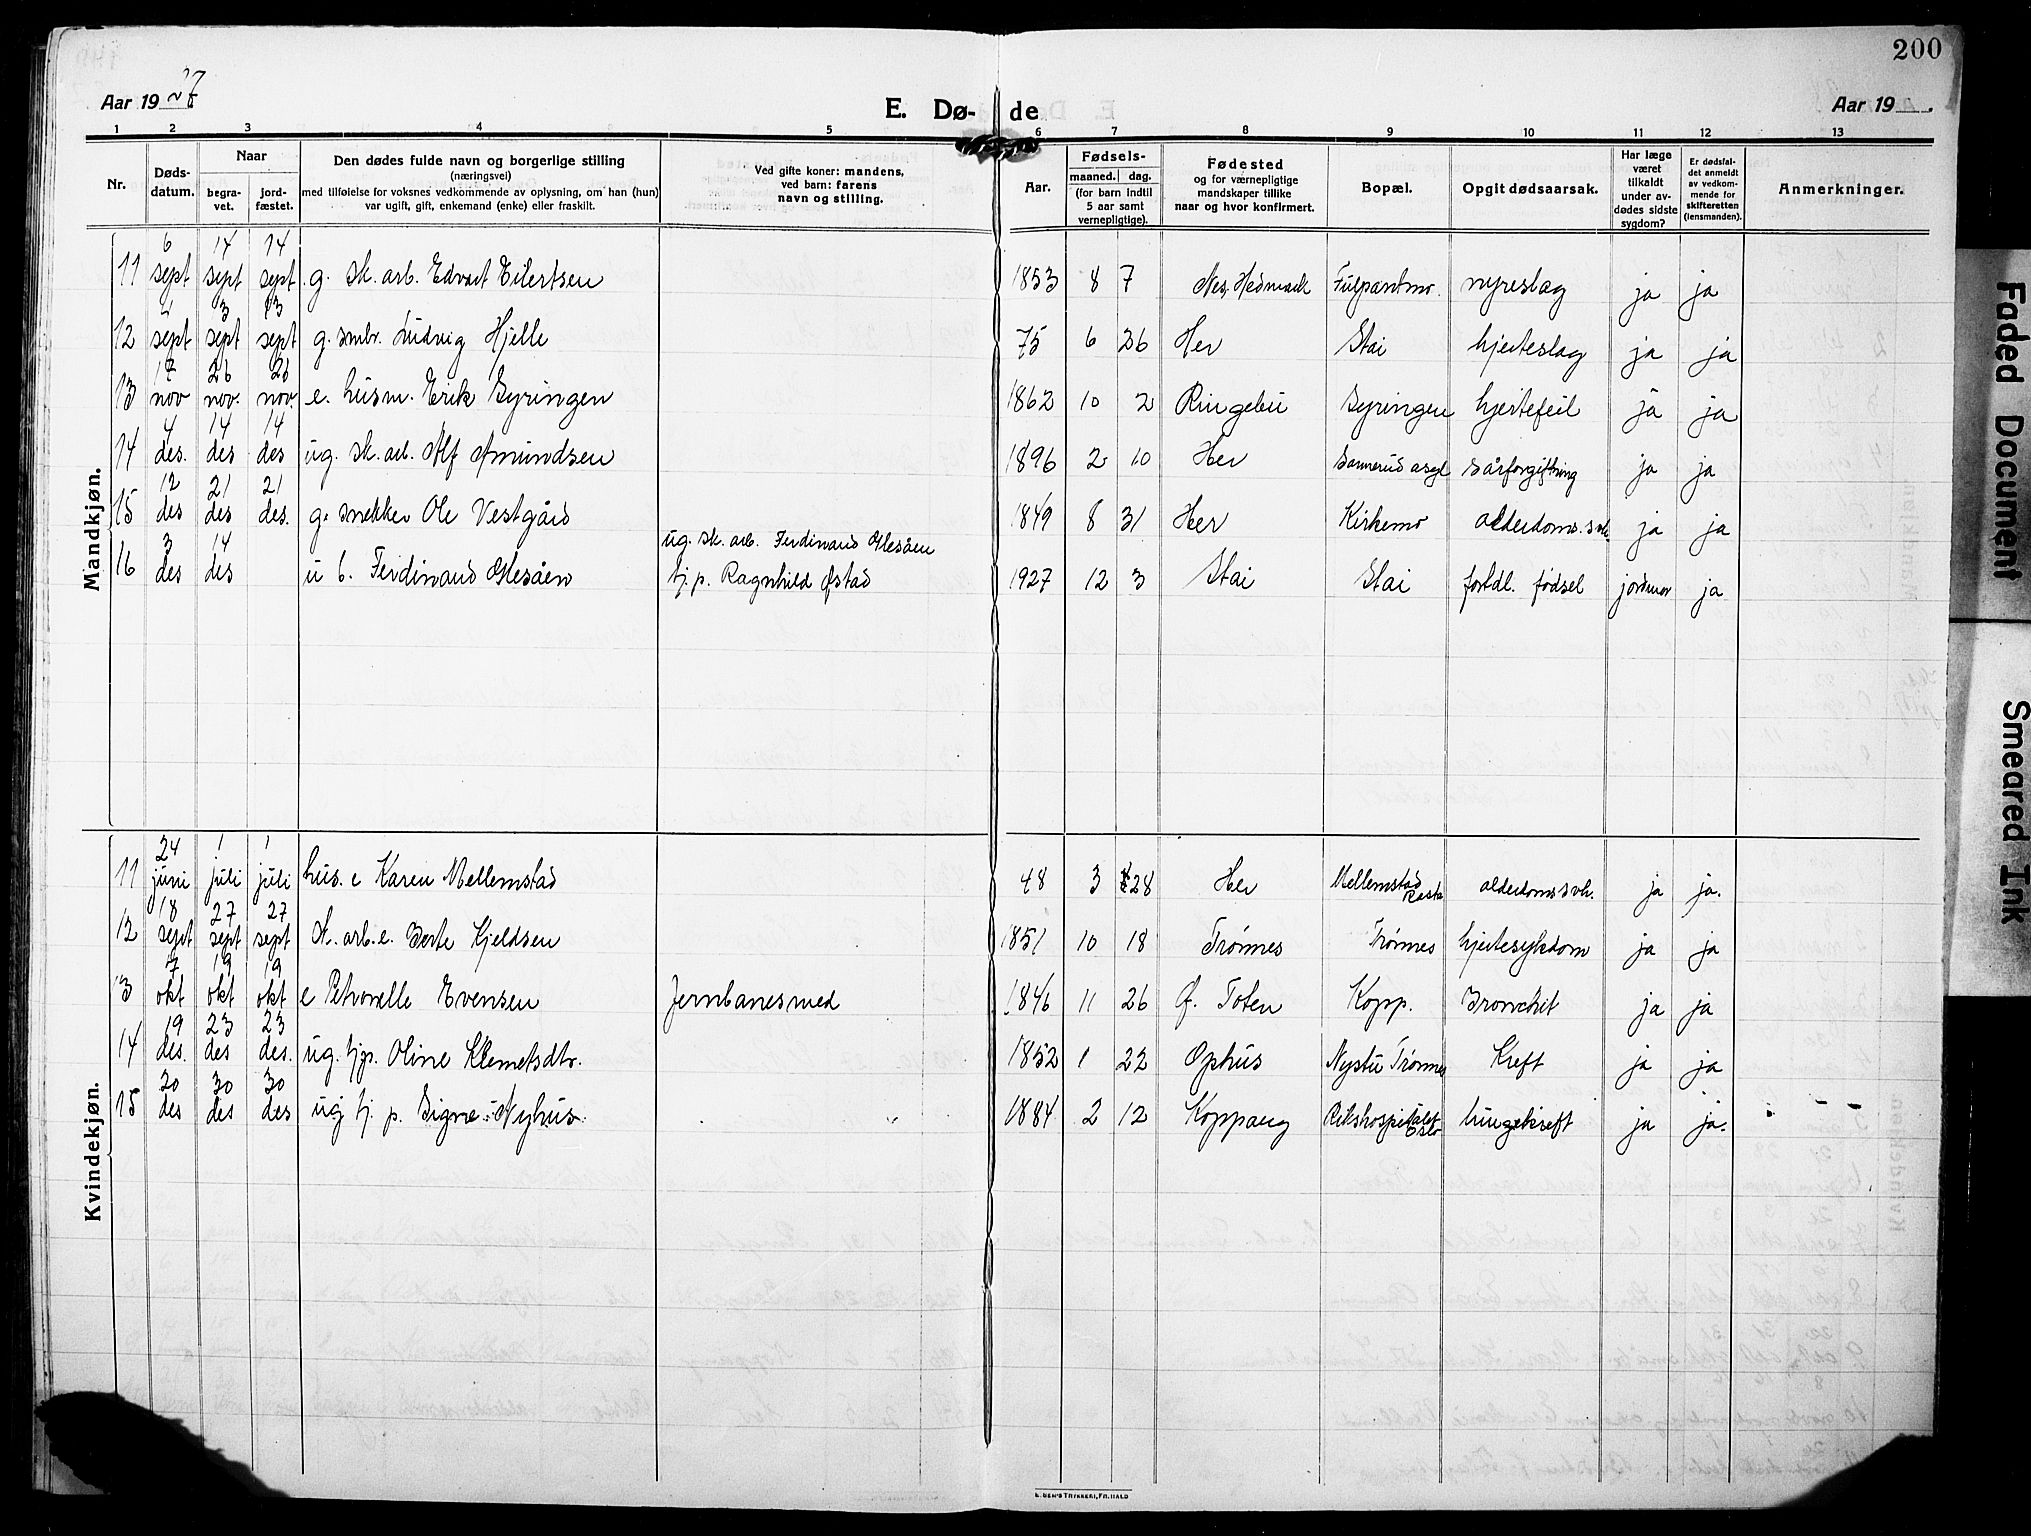 200
Aar 1927
E. Dø- de
Aar 19
1 2 3 4 5 6 7 8 9 10 11 12 13
Nr.
Døds-
datum.
Naar
begra-
vet.
jord-
fæstet.
Den dødes fulde navn og borgerlige stilling
(næringsvei)
med tilføielse for voksnes vedkommende av oplysning, om han (hun)
var ugift, gift, enkemand (enke) eller fraskilt.
Ved gifte koner: mandens,
ved barn: farens
navn og stilling.
Aar.
Fødsels-
maaned. dag.
(for barn indtil
5 aar samt
vernepligtige).
Fødested
og for værnepligtige
mandskaper tillike
naar og hvor konfirmert.
Bopæl.
Opgit dødsaarsak.
Har læge
været
tilkaldt
under av-
dødes sidste
sygdom?
Er dødsfal-
det anmeldt
av vedkom-
mende for
skifteretten
(lensmanden).
Anmerkninger.
Mandkjøn.
11 6 sept 14 sept 14 sept g. sk. arb. Edvart Eilertsen 1853 8 7 Nes, Hedmark Fulpantmo. nyreslag ja ja
12 sept 3 sept 13 sept g. smbr. Ludvig Hjelle 75 6 26 Her Stai hjerteslag ja ja
13 17 nov 26 nov. 26 nov. e. husm. Erik Gyringen 1862 10 2 Ringebu Gyringen hjertefeil ja ja
14 4 des. 14 des 14 des ug. sk. arb. Alf Amundsen 1896 2 10 Her Sannerud asyl sårforgiftning ja ja
15 12 des 21 des 21 des. g. snekker Ole Vestgård 1849 8 31 Her Kirkemo alderdoms.svk. ja ja
16 3 des 14 des u b. Ferdinand Olesåen ug. sk. arb. Ferdinand Olesåen
tj. p. Ragnhild Østad 1927 12 3 Stai Stai fortdl. fødsel jordmor ja
Kvindekjøn.
11 24 juni 1 juli 1 juli hus. e Karen Mellemstad 48 3 28 Her Mellemstad
Rasta alderdomssvk. ja ja.
12 18 sept 27 sept 27 sept sk. arb. e. Berte Kjeldsen 1851 10 18 Trønnes Trønnes hjertesykdom ja ja
13 7 okt 19 okt 19 okt e Petronelle Evensen Jernbanesmed 1846 11 26 Ø. Toten Kopp. Bronchit ja ja
14 19 des. 23 des 23 des. ug. tjp. Oline Klemetsdtr. 1852 1 22 Ophus Nystu Trønnes Kreft ja ja
15 20 des 30 des 30 des ug tj. p. Signe Nyhus 1884 2 12 Koppang Rikshospitalet
Oslo lungekreft ja ja.
Faded Document
Smeared Ink